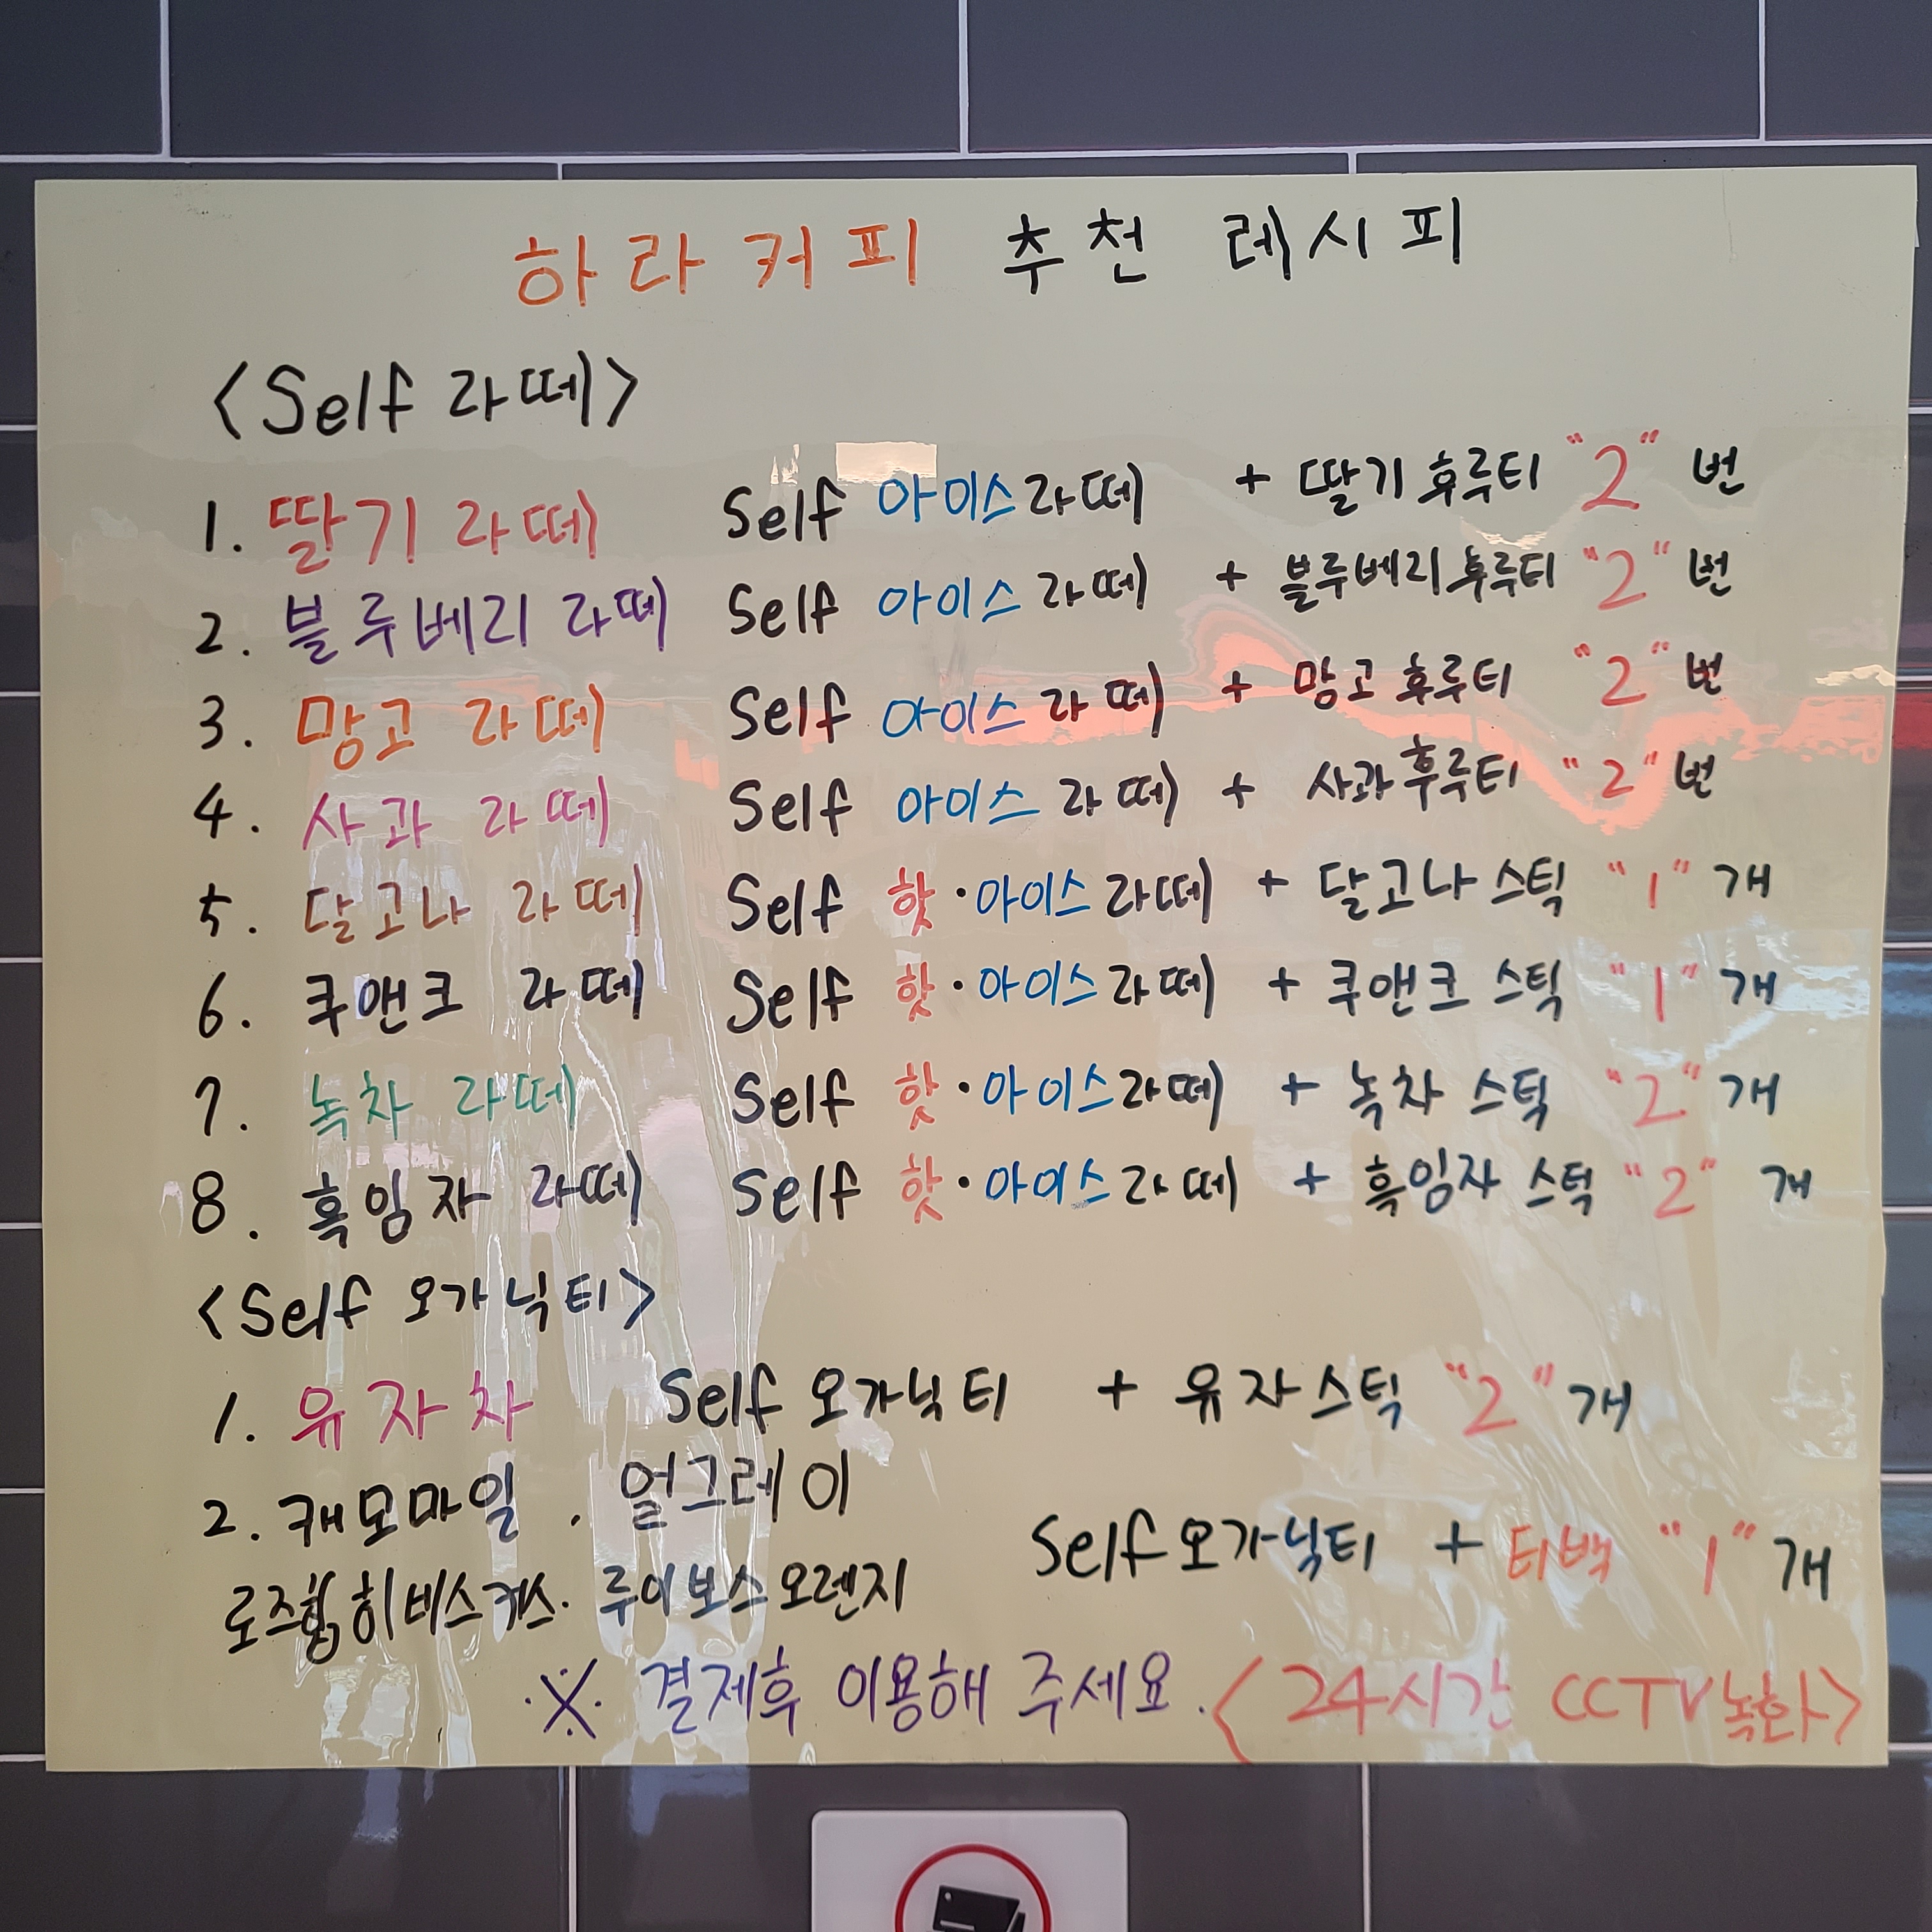 하라커피 추천 레시피
<Self 라떼>
1. 딸기 라떼 Self 아이스라떼 + 딸기후루티 "2" 번
2. 블루베리 라떼 Self 아이스 라떼 + 블루베리후루티 "2" 번
3. 망고 라떼 Self 아이스 라떼 + 망고 후루티 "2" 번
4. 사과 라떼 Self 아이스 라떼 + 사과후루티 "2" 번
5. 달고나 라떼 Self 핫·아이스라떼 + 달고나 스틱 "1" 개
6. 쿠앤크 라떼 Self 핫·아이스라떼 + 쿠앤크 스틱 "1" 개
7. 녹차 라떼 Self 핫·아이스라떼 + 녹차 스틱 "2" 개
8. 흑임자 라떼 Self 핫·아이스라떼 + 흑임자 스틱 "2" 개
<Self 오가닉티>
1. 유자차 Self 오가닉티 + 유자스틱 "2" 개
2. 캐모마일 . 얼그레이
로즈힙히비스커스. 루이보스오렌지 Self오가닉티 + 티백 "1" 개
※ 결제후 이용해 주세요. <24시간 CCTV녹화>